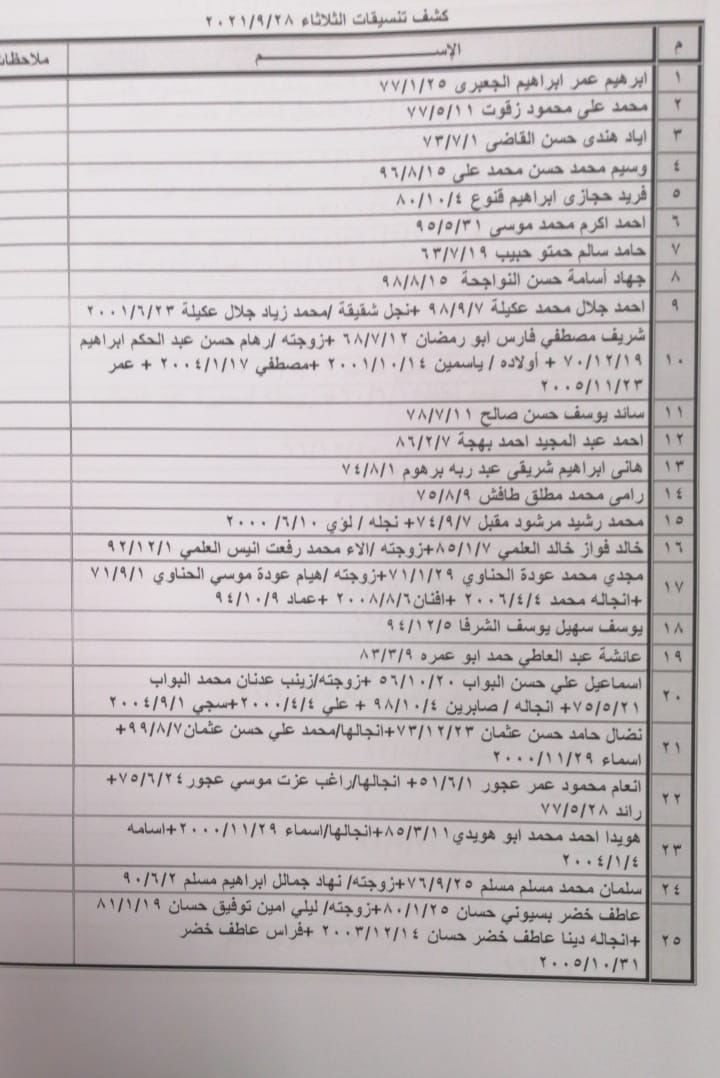 كشف تنسيقات الثلاثاء ٢٠٢١/٩/٢٨
م الإســـــم ملاحظات
١ ابرهيم عمر ابراهيم الجعبرى ٧٧/١/٢٥
٢ محمد على محمود زقوت ٧٧/٥/١١
٣ اياد هندى حسن القاضى ٧٣/٧/١
٤ وسيم محمد حسن محمد على ٩٦/٨/١٥
٥ فريد حجازى ابراهيم قنوع ٨٠/١٠/٤
٦ احمد اكرم محمد موسى ٩٥/٥/٣١
٧ حامد سالم حمتو حبيب ٦٣/٧/١٩
٨ جهاد أسامة حسن النواجحة ٩٨/٨/١٥
٩ احمد جلال محمد عكيلة ٩٨/٩/٧ +نجل شقيقة /محمد زياد جلال عكيلة ٢٠٠١/٦/٢٣
١٠ شريف مصطفي فارس ابو رمضان ٦٨/٧/١٢ +زوجته /رهام حسن عبد الحكم ابراهيم
٧٠/١٢/١٩ + أولاده / ياسمين ٢٠٠١/١٠/١٤ +مصطفي ٢٠٠٤/١/١٧ + عمر
٢٠٠٥/١١/٢٣
١١ سائد يوسف حسن صالح ٧٨/٧/١١
١٢ احمد عبد المجيد احمد بهجة ٨٦/٢/٧
١٣ هانى ابراهيم شريقى عبد ربه برهوم ٧٤/٨/١
١٤ رامى محمد مطلق طافش ٧٥/٨/٩
١٥ محمد رشيد مرشود مقبل ٧٤/٩/٧+ نجله / لؤي ٢٠٠٠/٦/١٠
١٦ خالد فواز خالد العلمي ٨٥/١/٧+زوجته /الاء محمد رفعت انيس العلمي ٩٢/١٢/١
١٧ مجدي محمد عودة الحناوي ٧١/١/٢٩+زوجته /هيام عودة موسي الحناوي ٧١/٩/١
+انجاله محمد ٢٠٠٦/٤/٤ +افنان٢٠٠٨/٨/٦ +عماد ٩٤/١٠/٩
١٨ يوسف سهيل يوسف الشرفا ٩٤/١٢/٥
١٩ عائشة عبد العاطي حمد ابو عمره ٨٣/٣/٩
٢٠ اسماعيل علي حسن البواب ٥٦/١٠/٢٠ +زوجته/زينب عدنان محمد البواب
٧٥/٥/٢١+ انجاله / صابرين ٩٨/١٠/٤ + علي ٢٠٠٠/٤/٤+سجي ٢٠٠٤/٩/١
٢١ نضال حامد حسن عثمان ٧٣/١٢/٢٣+انجالها/محمد علي حسن عثمان٩٩/٨/٧+
اسماء ٢٠٠٠/١١/٢٩
٢٢ انعام محمود عمر عجور ٥١/٦/١+ انجالها/راغب عزت موسي عجور٧٥/٦/٢٤+
رائد ٧٧/٥/٢٨
٢٣ هويدا احمد محمد ابو هويدي٨٥/٣/١١+انجالها/اسماء ٢٠٠٠/١١/٢٩+اسامه
٢٠٠٤/١/٤
٢٤ سلمان محمد مسلم مسلم ٧٦/٩/٢٥+زوجته/ نهاد جمالل ابراهيم مسلم ٩٠/٦/٢
٢٥ عاطف خضر بسيوني حسان ٨٠/١/٢٥+زوجته/ ليلي امين توفيق حسان ٨١/١/١٩
+انجاله دينا عاطف خضر حسان ٢٠٠٣/١٢/١٤ +فراس عاطف خضر
٢٠٠٥/١٠/٣١